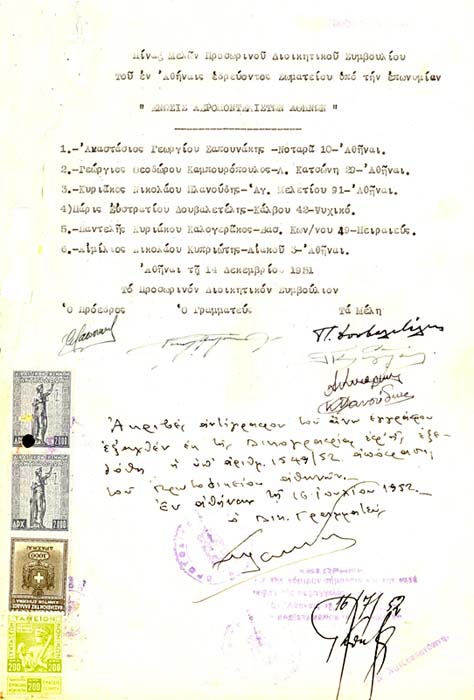 Πίναξ Μελῶν Προσωρινοῦ Διοικητικοῦ Συμβουλίου
Τοῦ ἐν Ἀθήναις ἑδρεύοντος Σωματείου ὑπό τήν ἐπωνυμίαν
" ΕΝΩΣΙΣ ΑΕΡΟΜΟΝΤΕΛΙΣΤΩΝ ΑΘΗΝΩΝ "
1.-Ἀναστάσιος Γεωργίου Σαπουνάκης -Νοταρᾶ 10-Ἀθῆναι.
2.-Γεώργιος Θεοδώρου Καμπουρόπουλος-Λ. Κατσώνη 29-Ἀθῆναι.
3.-Κυριᾶκος Νικολάου Πλανούδης-Ἁγ. Μελετίου 91-Ἀθῆναι.
4)Πάρις Εὐστρατίου Δουβαλετέλης-Κάλβου 42-Ψυχικό.
5.-Παντελῆς Κυριάκου Καλογερᾶκος-Βασ. Κων/νου 49-Πειραιεύς.
6.-Αἰμίλιος Νικολάου Κυπριώτης-Αἰακοῦ 3-Ἀθῆναι.
Ἀθῆναι τῇ 14 Δεκεμβρίου 1951
Τό Προσωρινόν Διοικητικόν Συμβούλιον
Ὁ Πρόεδρος Ὁ Γραμματεύς Τά Μέλη
Ἀκριβές ἀντίγραφον τοῦ ἄνω ἐγγράφου
ἐξαχθέν ἐκ τῆς δικογραφίας ἐφ' ἧς ἐξε-
δόθη ἡ ὑπ' ἀριθμ. 1549/52 ἀπόφασις
τοῦ Πρωτοδικείου Ἀθηνῶν.
Ἐν Ἀθήναις τῇ 16 Ἰουλίου 1952.
ὁ Δικ. Γραμματεύς
16/7/52
ΔΡΧ 2000
ΔΡΧ 2000
1000
ΔΡΑΧΜΑΙ
ΤΑΜΕΙΟΝ
ΝΟΜΙΚΩΝ
200 200
200